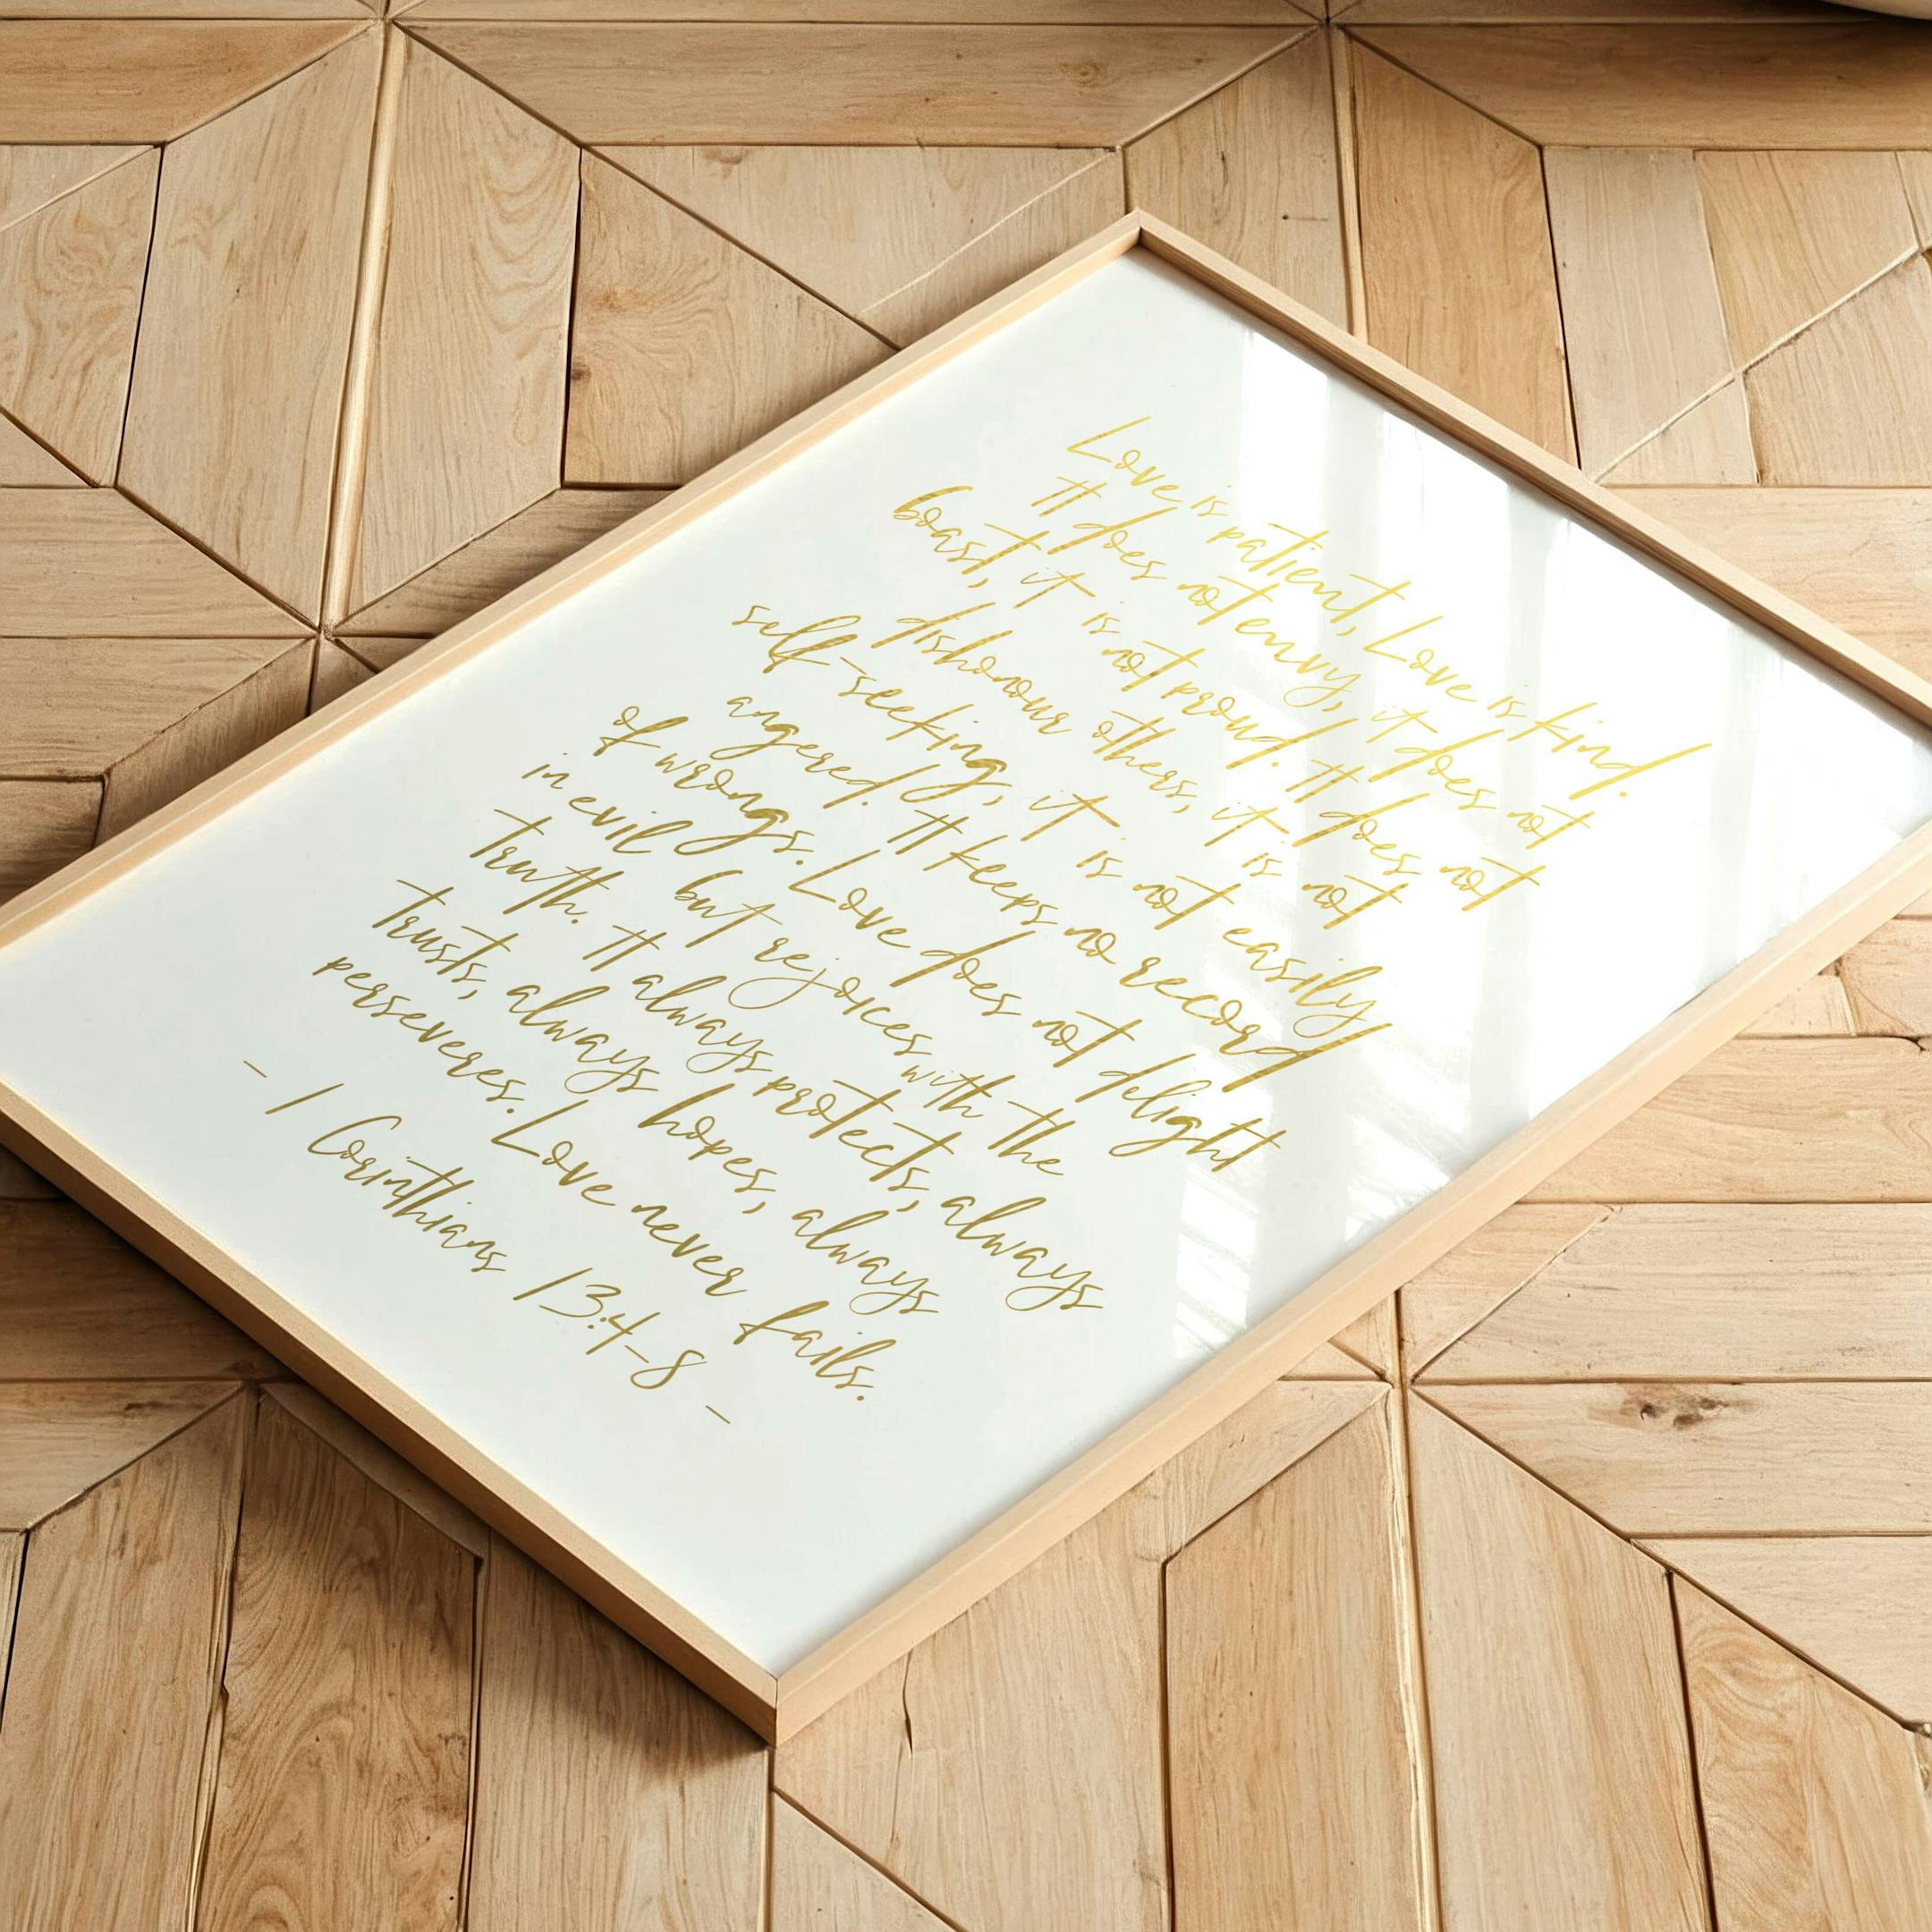 Love is patient, Love is kind.
It does not envy, it does not
boast, it is not proud. It does not
dishonour others, it is not
self-seeking, it is not easily
angered. It keeps no record
of wrongs. Love does not delight
in evil but rejoices with the
truth. It always protects, always
trusts, always hopes, always
perseveres. Love never fails.
- 1 Corinthians 13:4-8 -